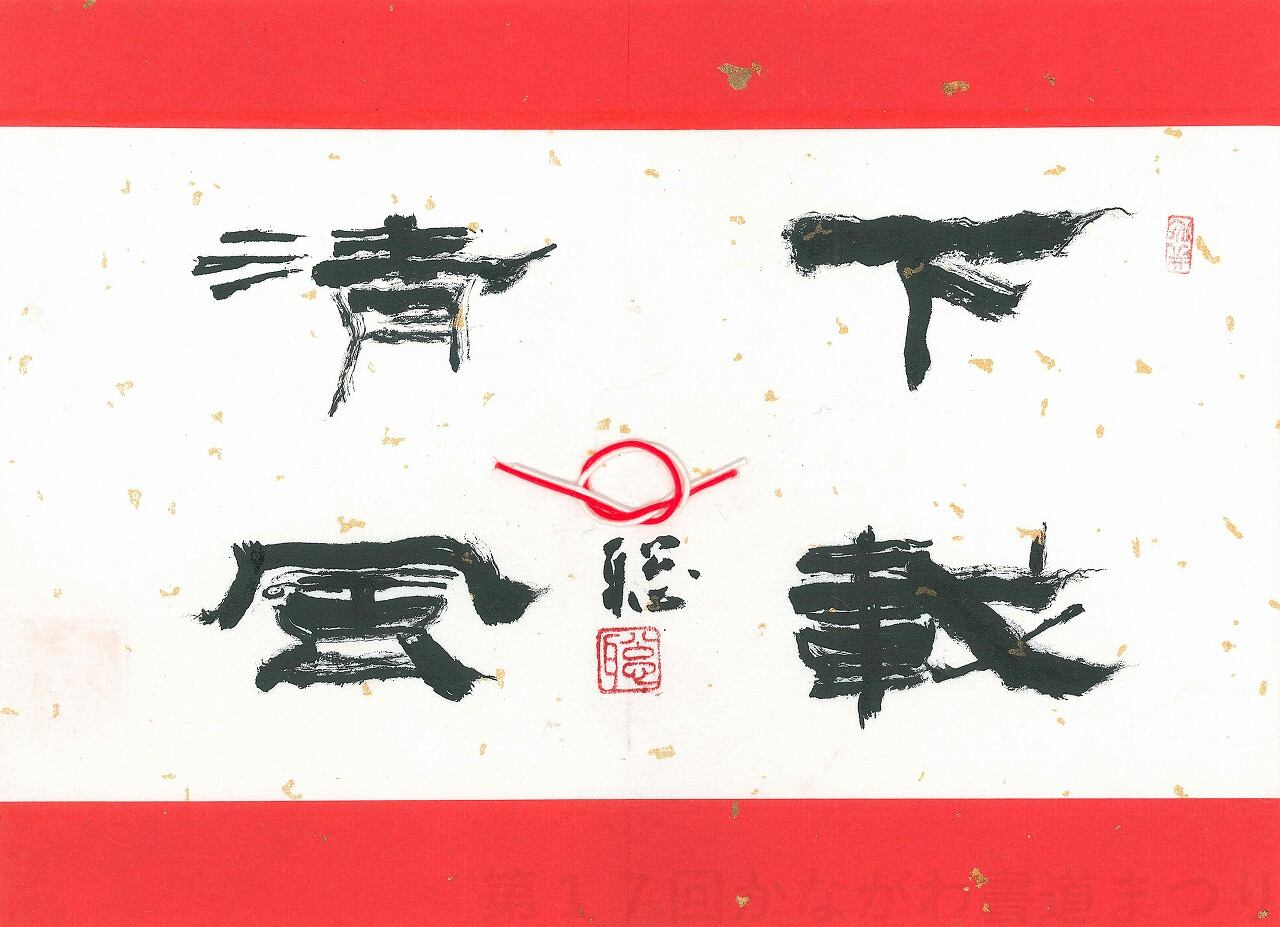 下載
清風
聡
聡
第１７回かながわ書道まつり